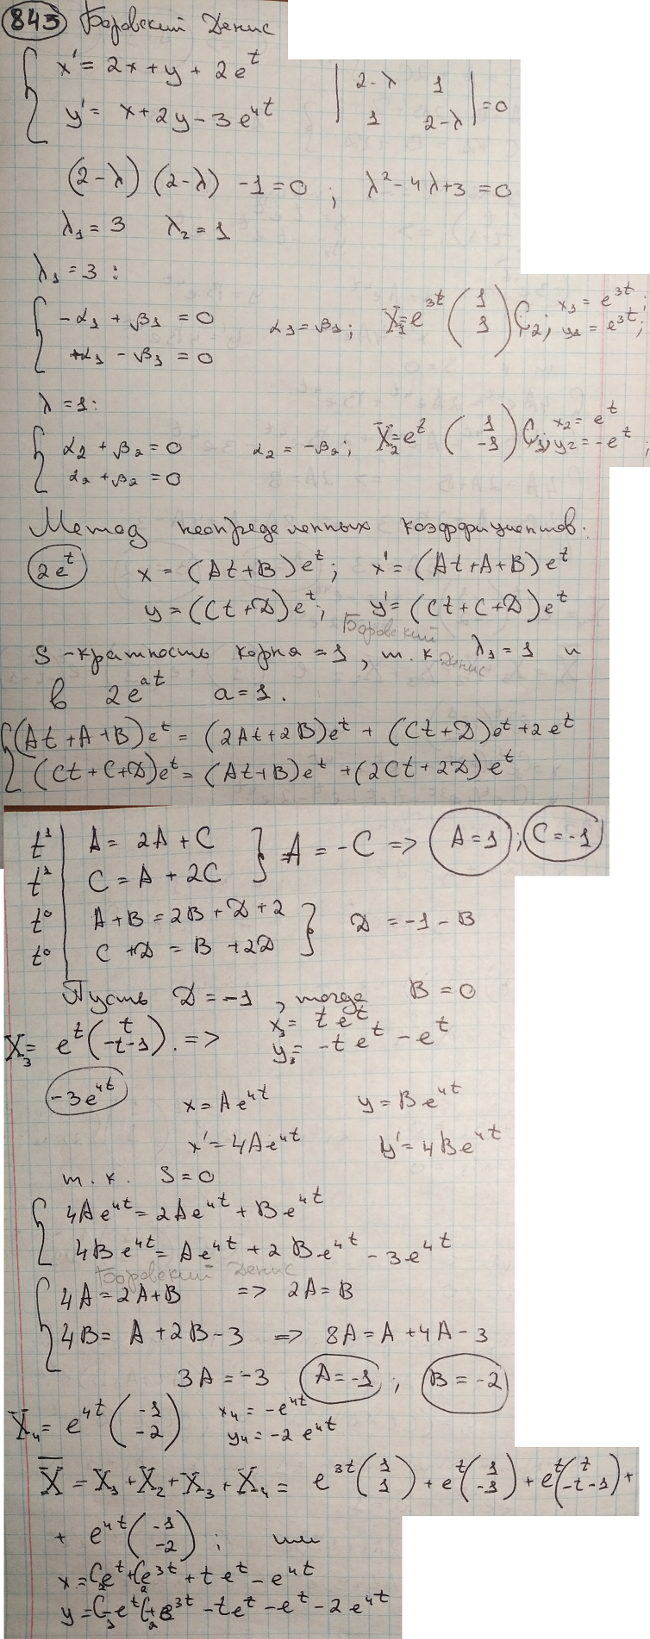 843 Боровский Денис
x' = 2x + y + 2e^t
y' = x + 2y - 3e^{4t}
| 2-λ 1 |
| 1 2-λ | = 0
(2-λ)(2-λ) - 1 = 0 ; λ² - 4λ + 3 = 0
λ₁ = 3 λ₂ = 1
λ₁ = 3 :
{ -α₁ + β₁ = 0
+α₁ - β₁ = 0
α₁ = β₁ ; X₁ = e^{3t} (1 1) C₂ ; x₁ = e^{3t} ; y₁ = e^{3t} ;
λ = 1 :
{ α₂ + β₂ = 0
α₂ + β₂ = 0
α₂ = -β₂ ; X₂ = e^t (1 -1) C₁ ; x₂ = e^t y₂ = -e^t ;
Метод неопределенных коэффициентов:
2e^t x = (At + B)e^t ; x' = (At + A + B)e^t
y = (Ct + D)e^t ; y' = (Ct + C + D)e^t
Боровский Денис
S - кратность корня = 1 , т.к. λ₁ = 1 и
в 2e^{at} a = 1 .
{ (At + A + B)e^t = (2At + 2B)e^t + (Ct + D)e^t + 2e^t
(Ct + C + D)e^t = (At + B)e^t + (2Ct + 2D)e^t
t¹ | A = 2A + C
t¹ | C = A + 2C } A = -C => A = 1 ; C = -1
t⁰ | A + B = 2B + D + 2
t⁰ | C + D = B + 2D } D = -1 - B
Пусть D = -1 , тогда B = 0
X₃ = e^t (t -t-1) . => x₃ = te^t
y₃ = -te^t - e^t
-3e^{4t} x = Ae^{4t} y = Be^{4t}
x' = 4Ae^{4t} y' = 4Be^{4t}
т. к. S = 0
{ 4Ae^{4t} = 2Ae^{4t} + Be^{4t}
4Be^{4t} = Ae^{4t} + 2Be^{4t} - 3e^{4t}
Боровский Денис
{ 4A = 2A + B => 2A = B
4B = A + 2B - 3 => 8A = A + 4A - 3
3A = -3 A = -1 ; B = -2
X₄ = e^{4t} (-1 -2) x₄ = -e^{4t}
y₄ = -2e^{4t}
X̅ = X₁ + X₂ + X₃ + X₄ = e^{3t} (1 1) + e^t (1 -1) + e^t (t -t-1) +
+ e^{4t} (-1 -2) ; или
x = C₁e^t + C₂e^{3t} + te^t - e^{4t}
y = -C₁e^t + C₂e^{3t} - te^t - e^t - 2e^{4t}